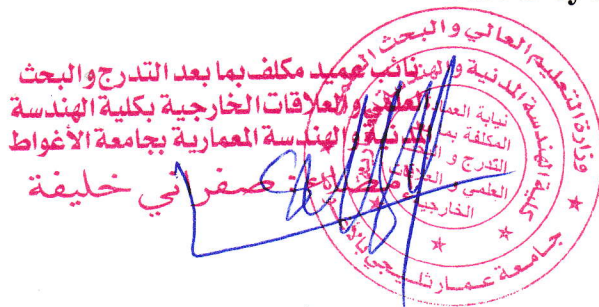 نائب عميد مكلف بما بعد التدرج والبحث
العلمي والعلاقات الخارجية بكلية الهندسة
المدنية والهندسة المعمارية بجامعة الأغواط
صفراني خليفة
وزارة التعليم العالي و البحث العلمي
كلية الهندسة المدنية و
نيابة
المكلفة بما
التدرج و
العلمي و العلاقات
الخارجية
جامعة عمار ثليجي